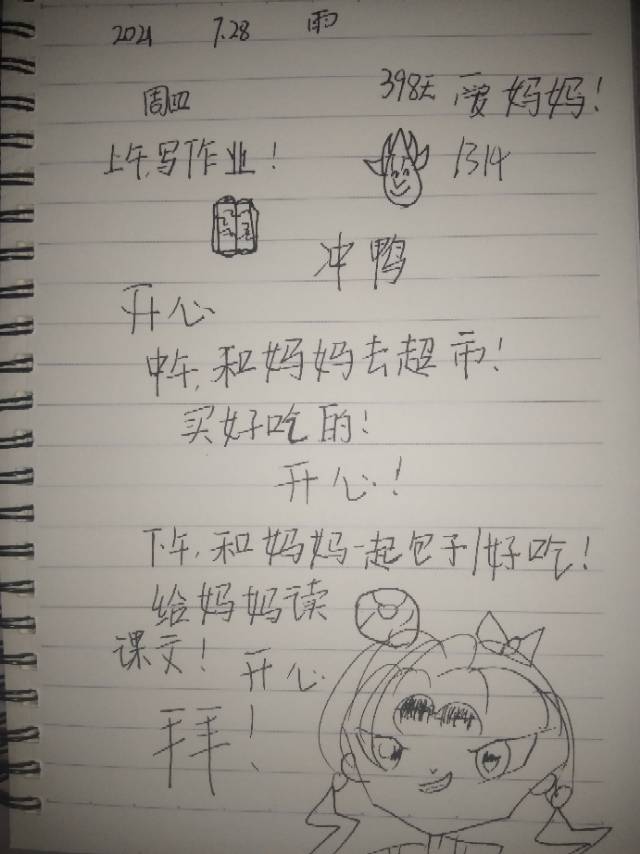 2021 7.28 雨
周四 398天 爱妈妈!
上午,写作业! 1314
冲鸭
开心
中午,和妈妈去超市!
买好吃的!
开心!
下午,和妈妈一起包子/好吃!
给妈妈读
课文! 开心
拜!